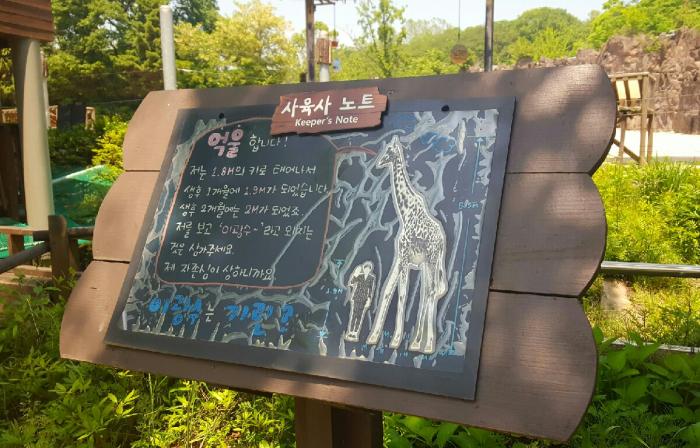 사육사 노트
Keeper's Note
억울 합니다!
저는 1.8M의 키로 태어나서
생후 1개월에 1.9M가 되었습니다
생후 2개월에는 2M가 되었죠
저를 보고 '이광수~'라고 외치는
것을 삼가주세요.
제 자존심이 상하니까요.
이광수는 기린?
1.9M